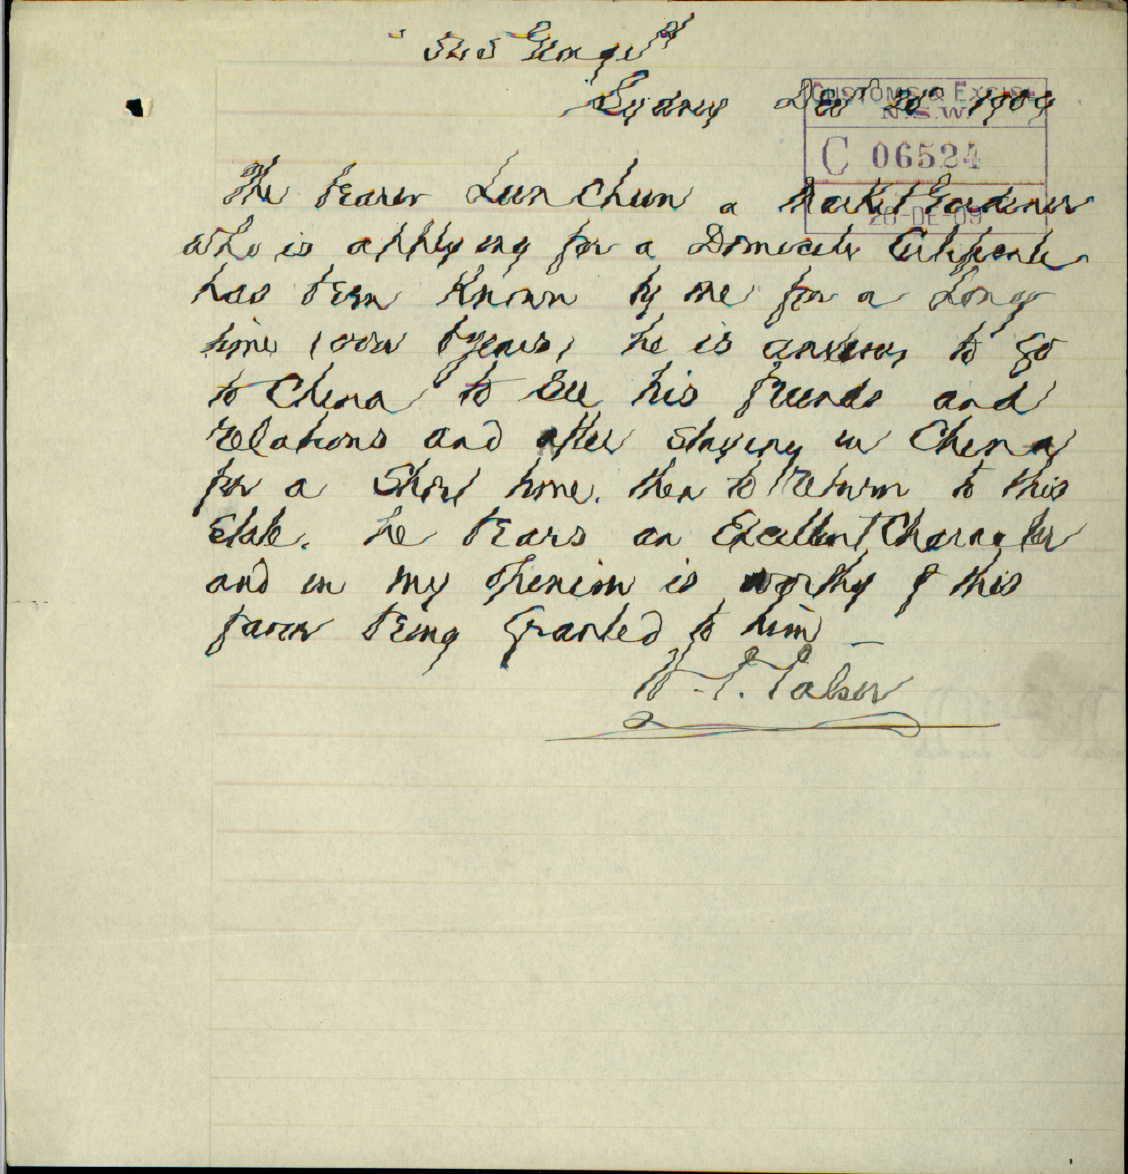 George St
Sydney Dec 20th 1909
CUSTOMS & EXCISE
N.S.W.
C 06524
20-DE-09
The bearer Lun Chun a Market Gardener
who is applying for a Domicile Certificate
has been Known by me for a Long
time (over years) he is anxious to go
to China to see his friends and
relations and after staying in China
for a Short time. then to Return to this
State. he bears an Excellent Character
and in my opinion is worthy of this
favor being Granted to him